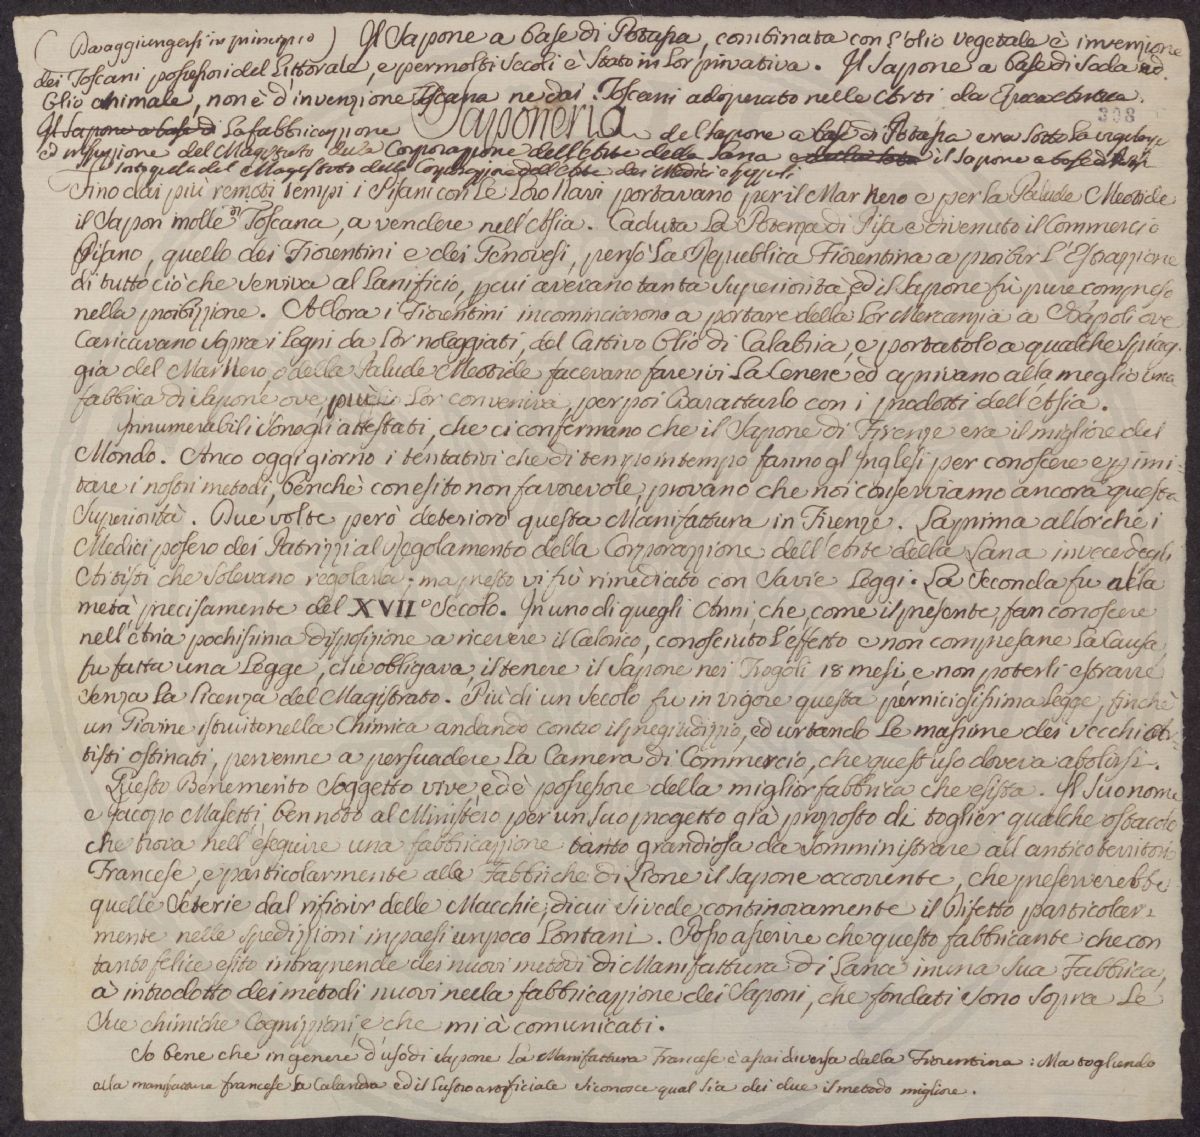 ( Da aggiungersi in principio ) Il Sapone a base di Potassa, combinata con l'olio vegetale è invenzione
dei Toscani possessori del Littorale, e per molti Secoli è Stato in Lor privativa. Il Sapone a base di Soda ed
Olio animale, non è d'invenzione Toscana ne dai Toscani adoperato nelle Arti da Epoca antica.
308
Il Sapone a base di La fabbricazzione Saponeria del Sapone a base di Potassa era sotto La
ed inspezzione del Magistrato della Corporazione dell'Arte della Lana e della Seta il Sapone a base di
del Magistrato della Corporazione dell'Arte dei Medici e Speziali
Sino dai più remoti tempi i Pisani con Le Loro Navi portavano per il Mar Nero e per la Palude Meotide
il Sapon molle di Toscana, a vendere nell'Asia. Caduta La Potenza di Pisa e divenuto il Commercio
Pisano, quello dei Fiorentini e dei Genovesi, pensò La Republica Fiorentina a proibir L'Estrazzione
di tutto ciò che serviva al Lanificio, p cui avevano tanta Superiorità, ed il Sapone fù pure compreso
nella proibizzione. Allora i Fiorentini incominciarono a portare della Lor Mercanzia a Napoli ove
Caricavano sopra i Legni da Lor noleggiati, del Cattivo Olio di Calabria, e portatolo a qualche spiag=
gia del Mar Nero, o della Palude Meotide facevano fare ivi La Cenere ed aprivano alla meglio una
fabbrica di Sapone ove più Lor conveniva, per poi Barattarlo con i prodotti dell'Asia.
Innumerabili Sono gli attestati, che ci confermano che il Sapone di Firenze era il migliore del
Mondo. Anco oggi giorno i tentativi che di tempo in tempo fanno gl'Inglesi per conoscere e p imi=
tare i nostri metodi, benchè con esito non favorevole, provano che noi conserviamo ancora questa
Superiorità. Due volte però deteriorò questa Manifattura in Firenze. La prima allorchè i
Medici posero dei Patrizzi al Regolamento della Corporazzione dell'Arte della Lana invece degli
Artisti che Solevano regolarla; ma presto vi fù rimediato con Savie Leggi. La Seconda fu alla
metà precisamente del XVII.º Secolo. In uno di quegli Anni, che, come il presente, fan conoscere
nell'Aria pochissima disposizione a ricevere il Calorico, conosciuto L'effetto e non compresane La Causa,
fu fatta una Legge, che obligava, il tenere il Sapone nei Trogoli 18 mesi, e non poterli estrarre
Senza La Licenza del Magistrato. Più di un Secolo fu in vigore questa perniciosissima Legge, finchè
un Giovine istruito nella Chimica andando contro il pregiudizzio, ed urtando Le massime dei vecchi Ar=
tisti ostinati, pervenne a persuadere La Camera di Commercio, che quest'uso doveva abolirsi.
Questo Benemerito Soggetto vive, ed è possessore della miglior fabbrica che esista. Il Suo nome
e Jacopo Masetti, ben noto al Ministero per un Suo progetto già proposto di toglier qualche ostacolo
che trova nell'eseguire una fabbricazzione tanto grandiosa da Somministrare all'antico territorio
Francese, e particolarmente alla Fabbriche di Lione il Sapone occorrente, che preserverebbe
quelle Seterie dal rifiorir delle Macchie, di cui si vede continovamente il Difetto particolar=
mente nelle Spedizzioni in paesi un poco Lontani. Posso asserire che questo fabbricante che con
tanto felice esito intraprende dei nuovi metodi di Manifattura di Lana in una Sua Fabbrica,
à introdotto dei metodi nuovi nella fabbricazzione dei Saponi, che fondati Sono Sopra Le
Sue chimiche Cognizzioni, e che mi à comunicati.
So bene che in genere d'uso di Sapone La Manifattura Francese è assai diversa dalla Fiorentina: Ma togliendo
alla manifattura francese La Calandra ed il Lustro artificiale si conosce qual sia dei due il metodo migliore.